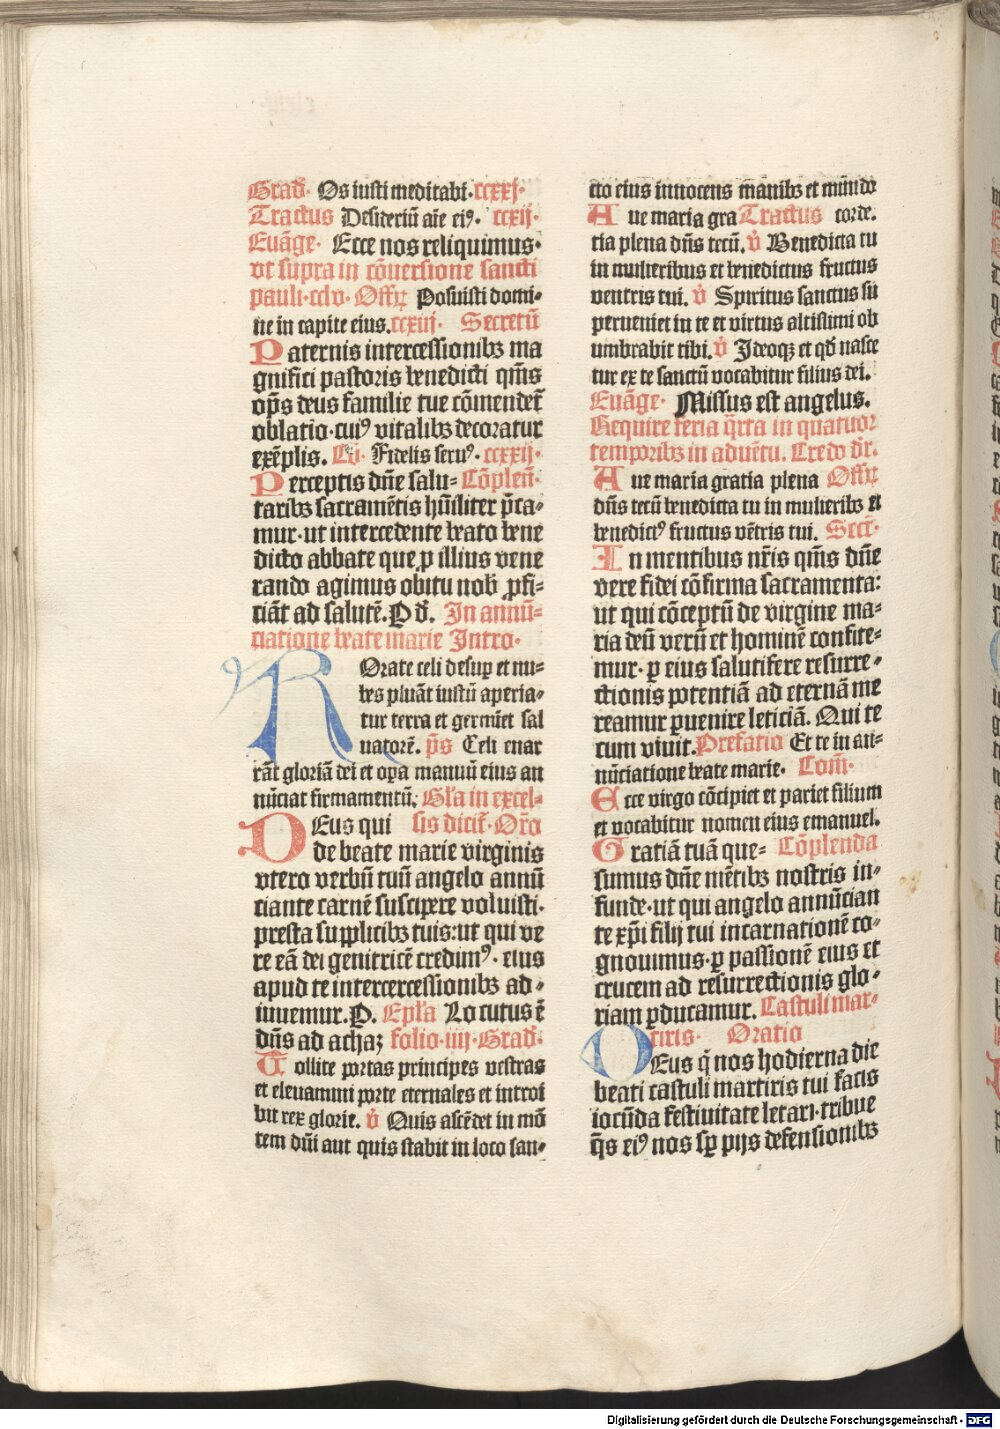 Grad̄· Os iusti meditabi·ccxxj·
Tractus Desideriū aīe eiꝰ. ccxij·
Euāge· Ecce nos reliquimus·
vt supra in cōuersione sancti
pauli·cclv· Offꝝ Posuisti domi⸗
ne in capite eius.ccxiij· Secretū
Paternis intercessionibꝫ ma
gnifici pastoris benedicti qm̄s
op̄s deus familie tue cōmendet̄
oblatio·cuiꝰ vitalibꝫ decoratur
exēplis. Cō· Fidelis seruꝰ. ccxxij·
Perceptis dn̄e salu⸗ Cōplen̄·
taribꝫ sacramētis hūiliter p̄ca⸗
mur·ut intercedente beato bene
dicto abbate que ꝓ illius vene
rando agimus obitu nob̄ ꝓfi⸗
ciāt ad salutē.P d̄. In annū⸗
ciatione beate marie Intro·
ROrate celi desuꝑ et nu⸗
bes pluāt iustū aperia⸗
tur terra et germīet sal
uatorē. p̄s Celi enar
rāt gloriā dei et oꝑa manuū eius an
nūciat firmamentū. Gl̄a in excel⸗
DEus qui sis dicit̄·Or̄o
de beate marie virginis
vtero verbū tuū angelo annū
ciante carnē suscipere voluisti·
presta supplicibꝫ tuis:ut qui ve
re eā dei genitricē credimꝰ· eius
apud te intercessionibꝫ ad⸗
iuuemur.P. Epl̄a Locutus ē
dn̄s ad achaz folio·iiij·Grad̄·
Tollite portas principes vestras
et eleuamini porte eternales et introi
bit rex glorie. v̄ Quis ascēdet in mō
tem dn̄i aut quis stabit in loco san⸗
cto eius innocens manibꝫ et mundo
Aue maria gra Tractus corde.
tia plena dn̄s tecū. v̄ Benedicta tu
in mulieribus et benedictus fructus
ventris tui. v̄ Spiritus sanctus su
perueniet in te et virtus altissimi ob
umbrabit tibi. v̄ Ideoqꝫ et qd̄ nasce
tur ex te sanctū vocabitur filius dei.
Euāge· Missus est angelus.
Require feria q̄rta in quatuor
temporibꝫ in aduētu. Credo dr̄.
Aue maria gratia plena Offꝝ
dn̄s tecū benedicta tu in mulieribꝫ et
benedictꝰ fructus vētris tui. Secr̄·
In mentibus nr̄is qm̄s dn̄e
vere fidei cōfirma sacramenta:
ut qui cōceptū de virgine ma⸗
ria deū verū et hominē confite⸗
mur· ꝑ eius salutifere resurre⸗
ctionis potentiā ad eternā me
reamur ꝑuenire leticiā. Qui te
cum viuit. Prefatio Et te in an⸗
nūciatione beate marie. Com̄·
Ecce virgo cōcipiet et pariet filium
et vocabitur nomen eius emanuel.
Gratiā tuā que⸗ Cōplenda
sumus dn̄e mētibꝫ nostris in⸗
funde·ut qui angelo annūcian
te xp̄i filij tui incarnationē co⸗
gnouimus·ꝑ passionē eius et
crucem ad resurrectionis glo⸗
riam ꝑducamur. Castuli mar⸗
tiris· Oratio
DEus q̄ nos hodierna die
beati castuli martiris tui facis
iocūda festiuitate letari·tribue
q̄s eiꝰ nos sꝑ pijs defensionibꝫ
Digitalisierung gefördert durch die Deutsche Forschungsgemeinschaft - DFG